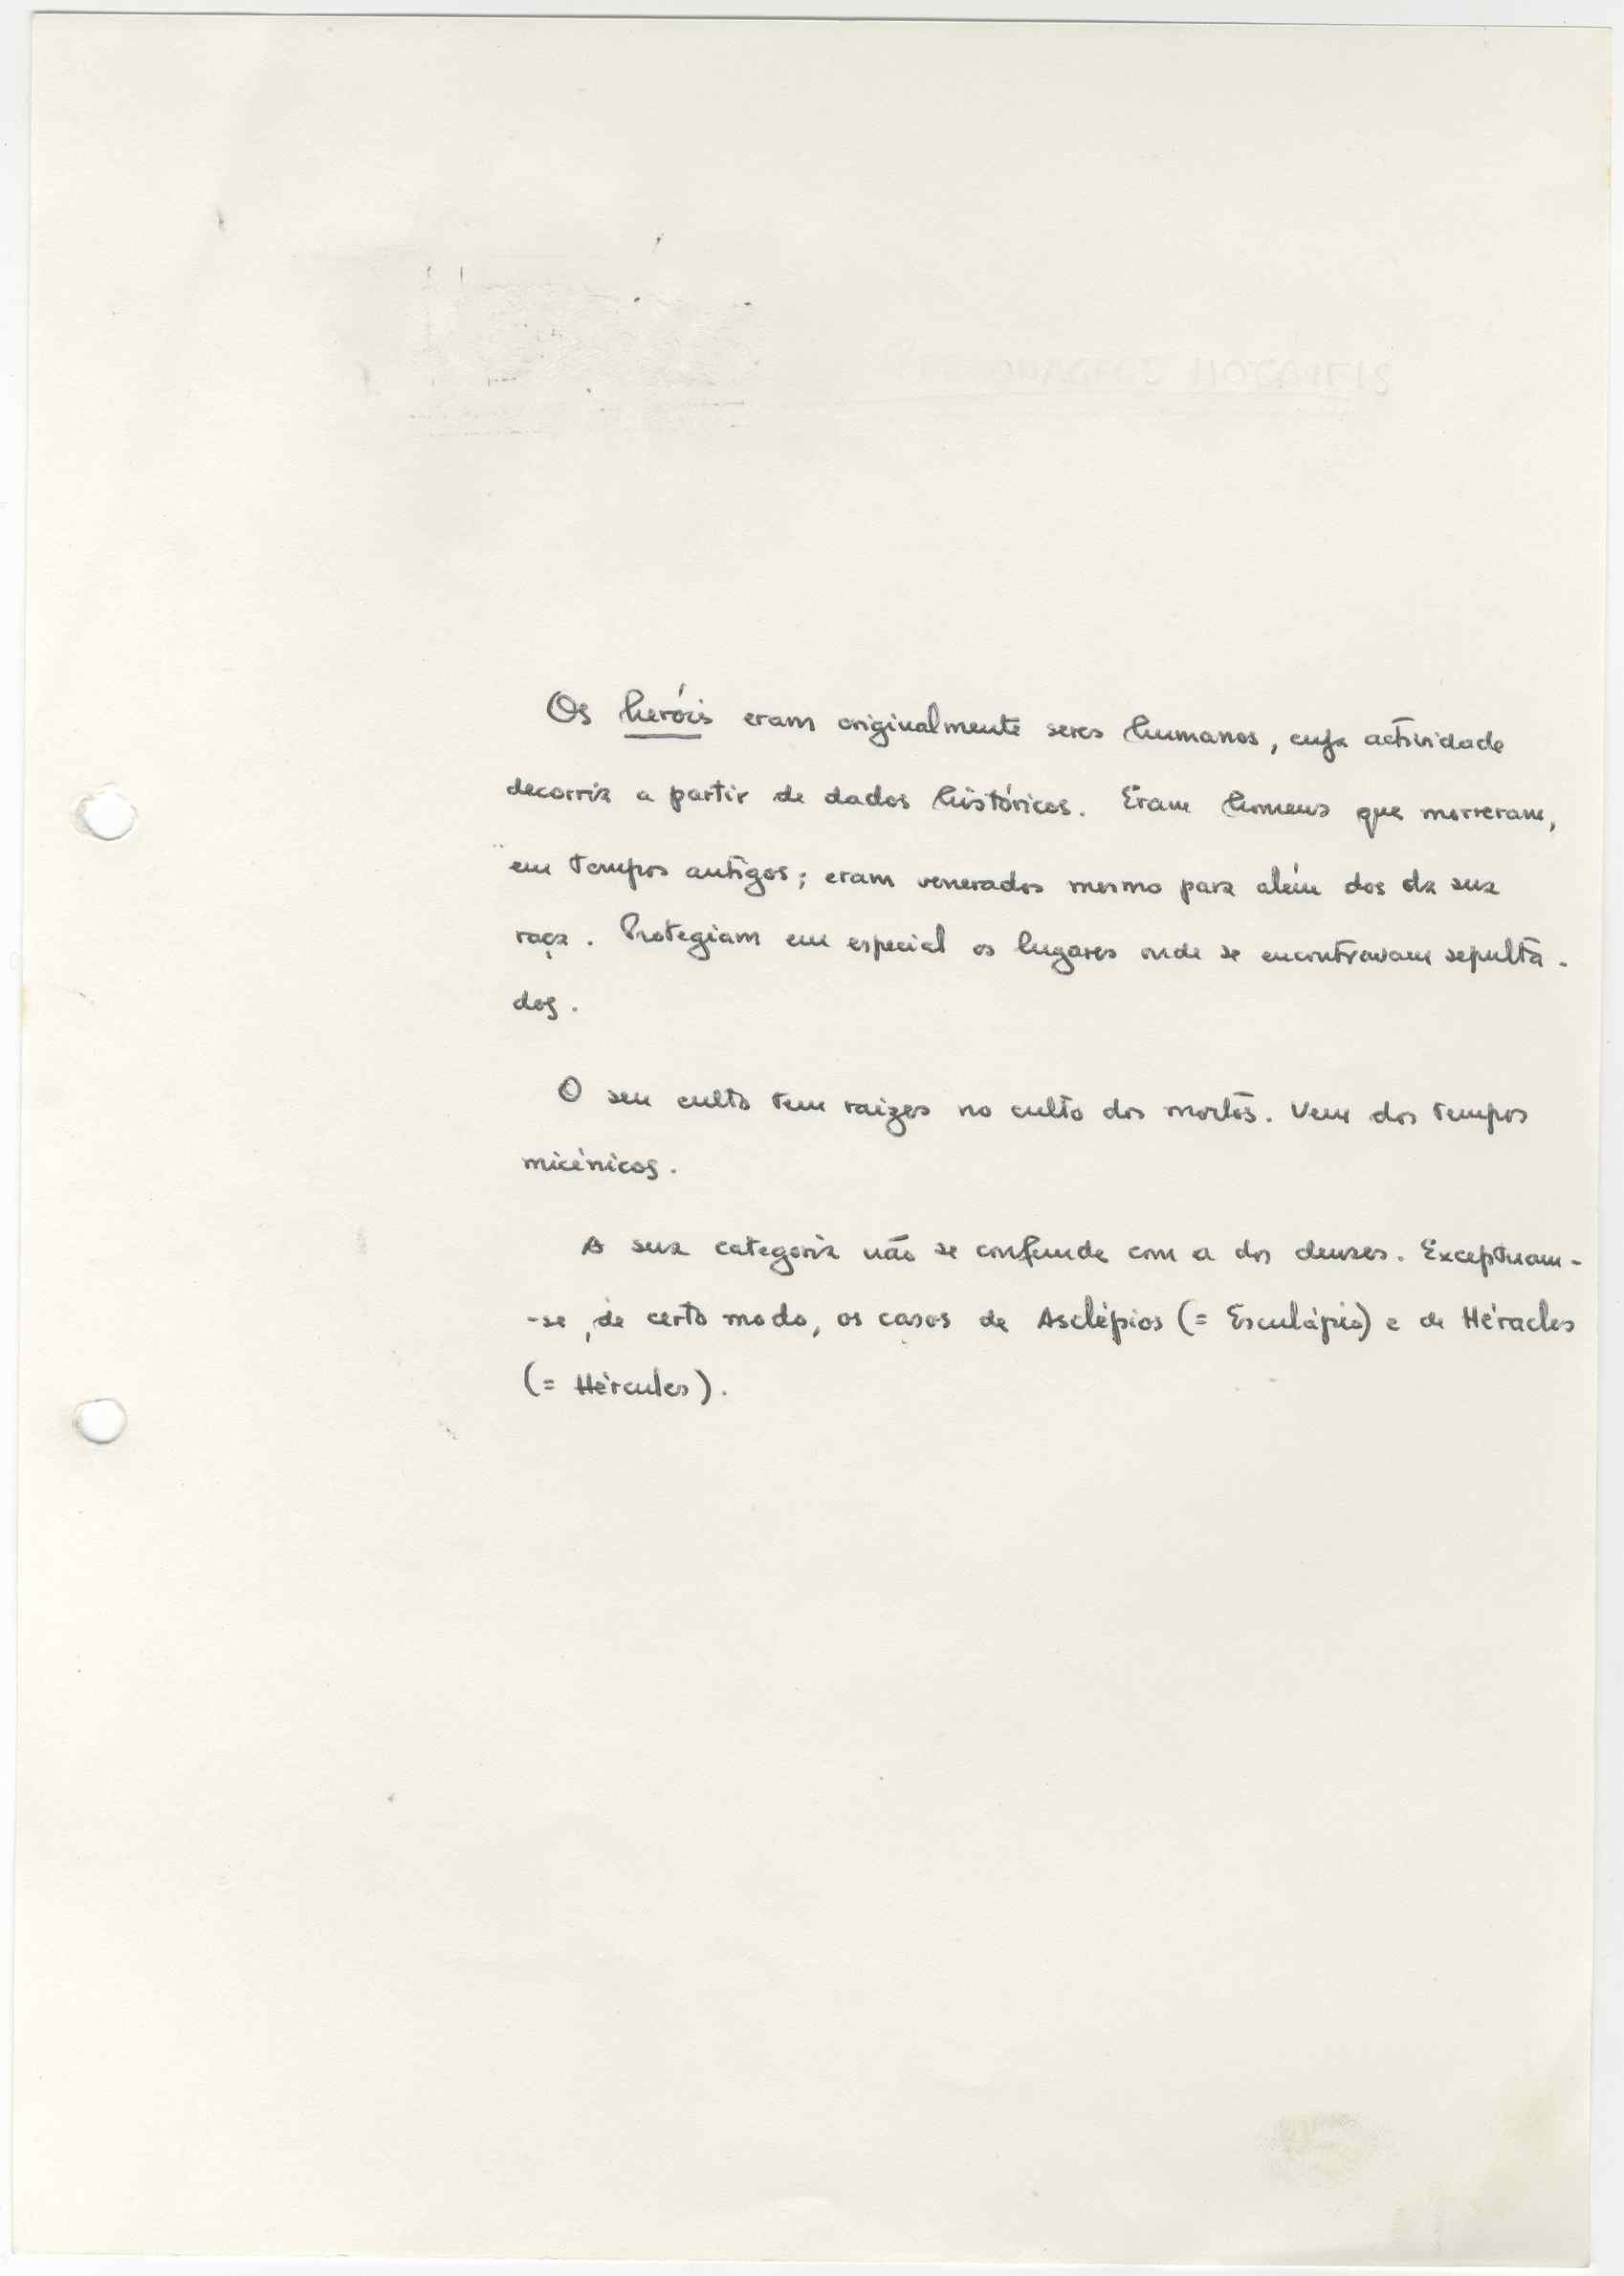 Os heróis eram originalmente seres humanos, cuja actividade
decorria a partir de dados históricos. Eram homens que morreram,
em tempos antigos; eram venerados mesmo para além dos da sua
raça. Protegiam em especial os lugares onde se encontravam sepulta-
dos.
O seu culto tem raízes no culto dos mortos. Vem dos tempos
micénicos.
A sua categoria não se confunde com a dos deuses. Exceptuam-
-se, de certo modo, os casos de Asclépios (= Esculápio) e de Héracles
(= Hércules).